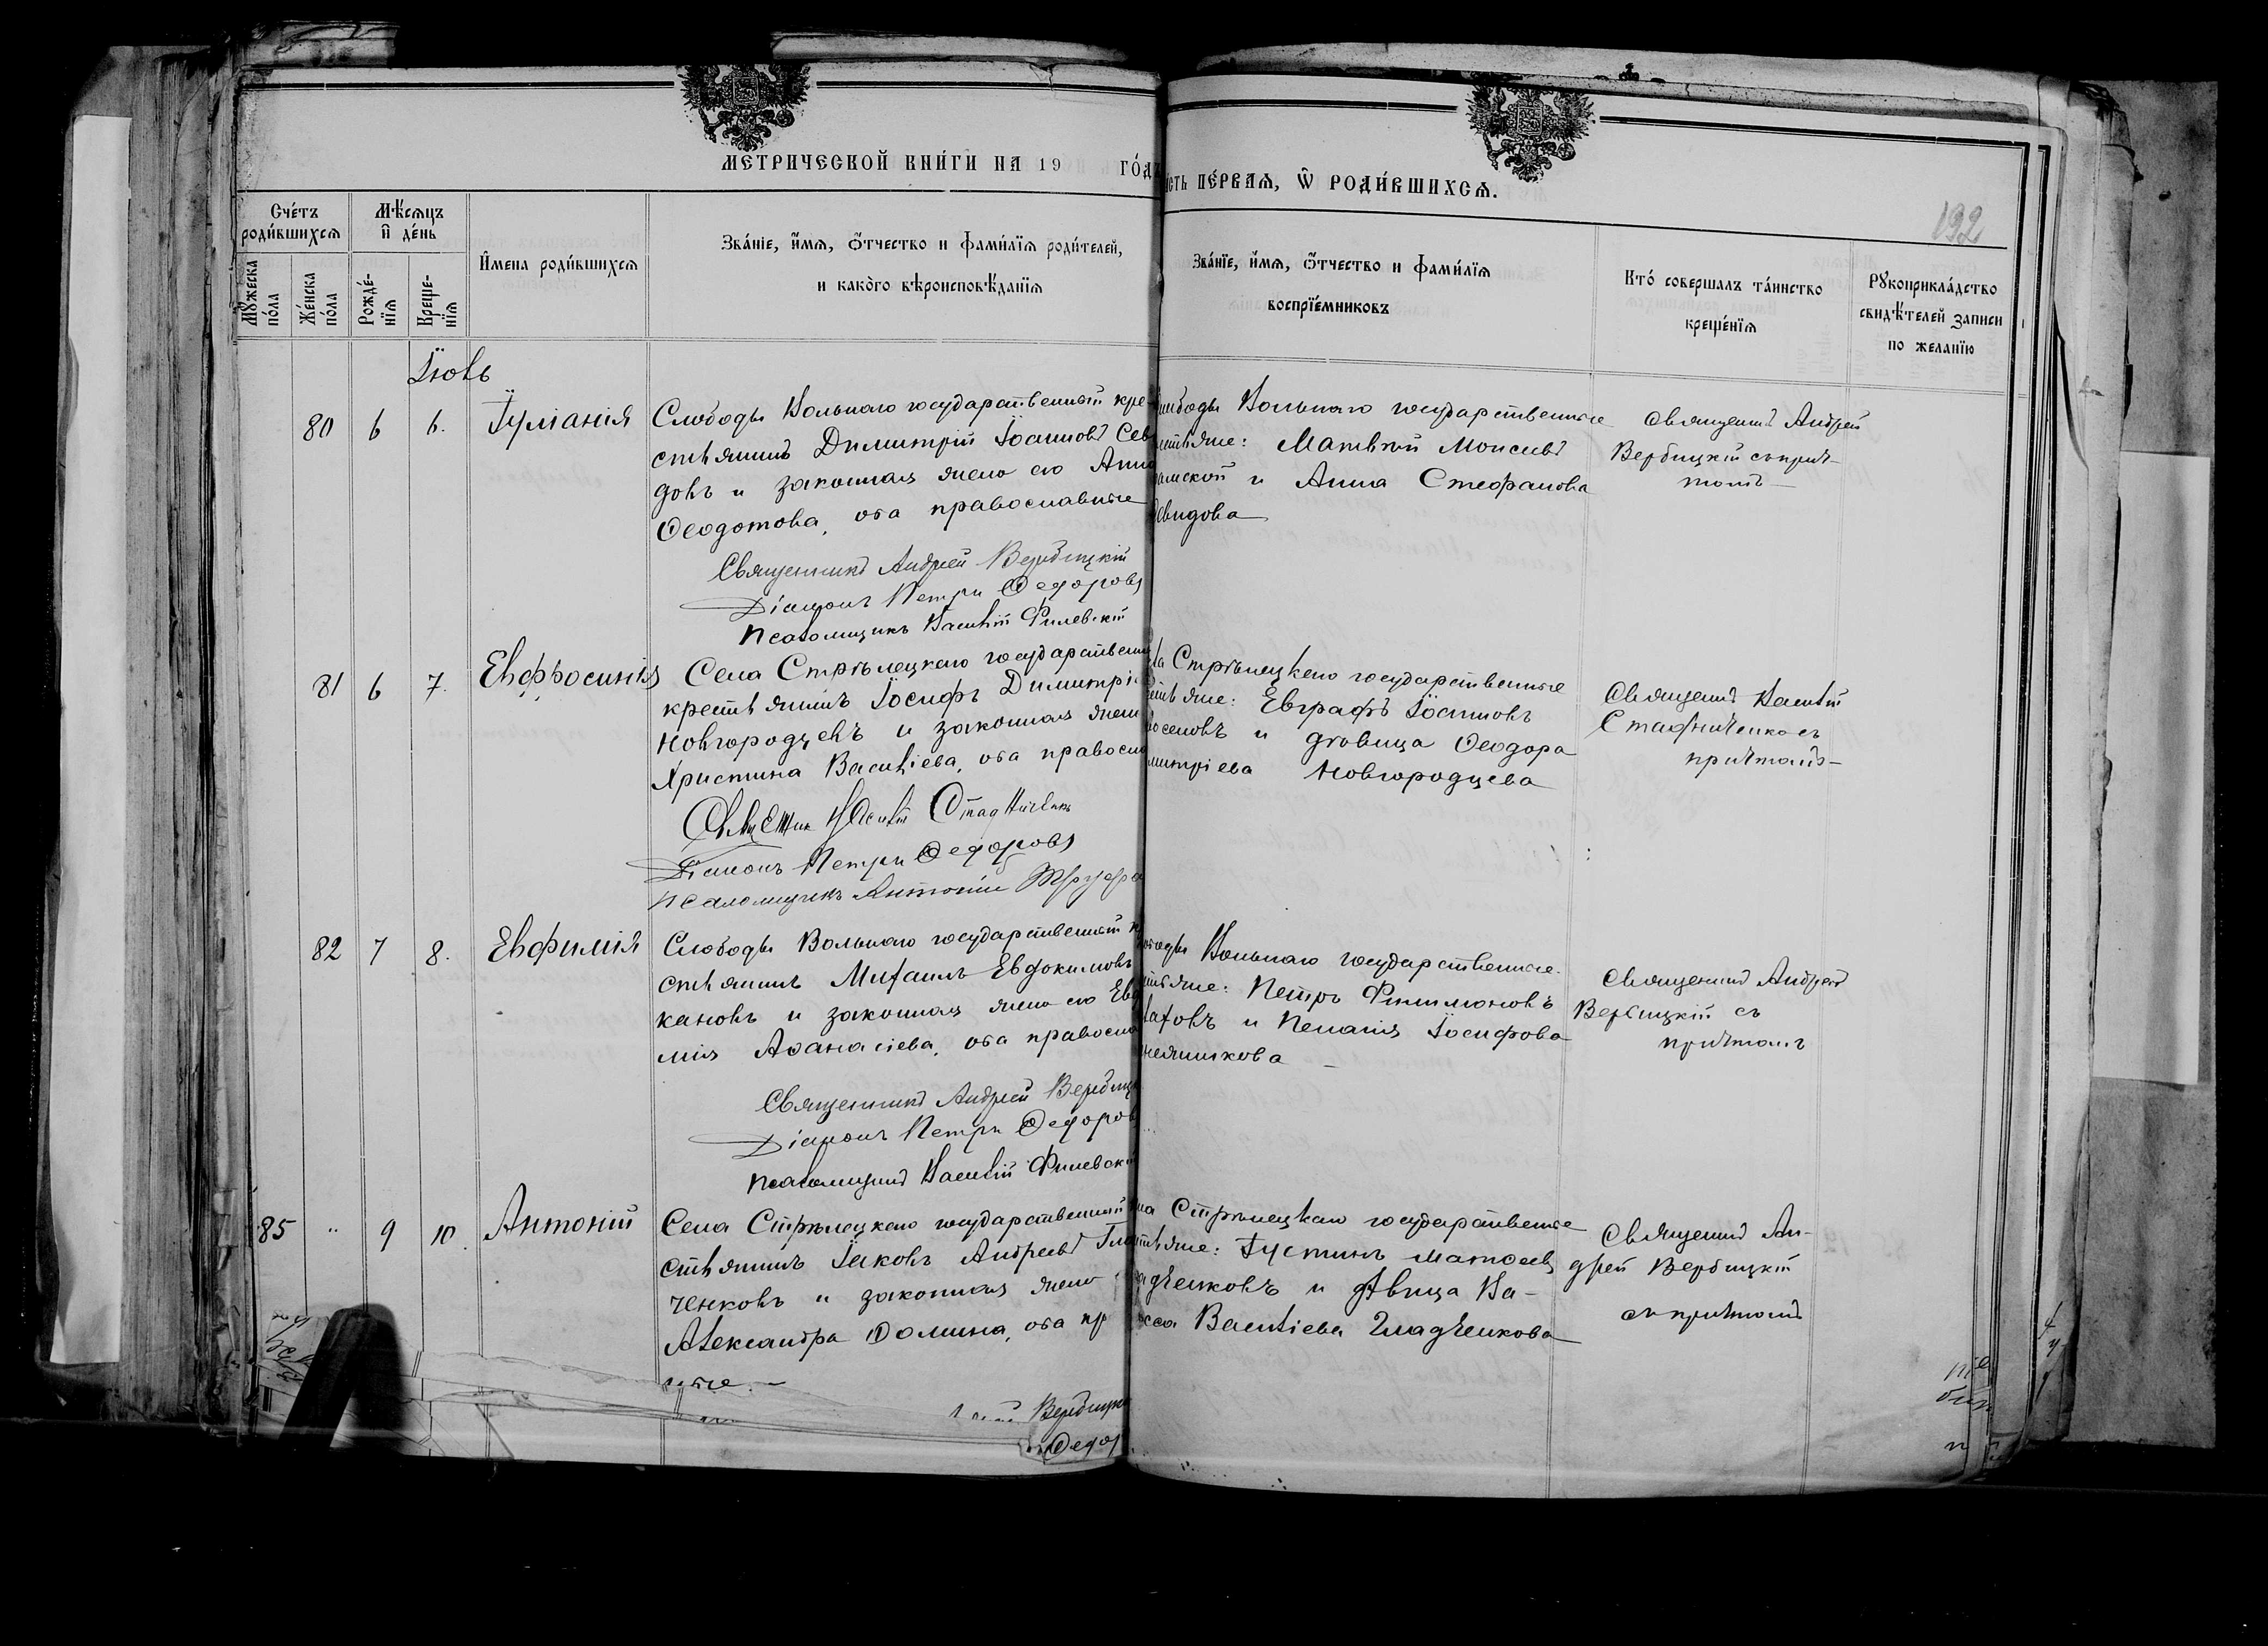 МЕТРИЧЕСКОЙ КНИ́ГИ НА 19 ГО́ДЪ
ПЕ́РВАѦ, Ѿ РОДИ́ВШИХСѦ.
192
Сче́тъ роди́вшихсѧ
Мѣ́сѧцъ и де́нь
Мꙋ́жеска по́ла
Же́нска по́ла
Рожде́нїѧ
Креще́нїѧ
И҆мена роди́вшихсѧ
Зва́нїе, и҆́мѧ, ѻ҆́тчество и фами́лїѧ роди́телей,
и како́го вѣроисповѣ́данїѧ
Зва́нїе, и҆́мѧ, ѻ҆́тчество и фами́лїѧ
воспрїе́мниковъ
Кто́ соверша́лъ та́инство
креще́нїѧ
Рꙋкоприкла́дство
свидѣ́телей записи
по желанїю
Іюль
80 6 6. Іуліанія
Слободы Вольнаго государственный кре-
стьянинъ Димитрій Іоанновъ Сев
довъ и законная жена его Анна
Ѳеодотова, оба православные
Слободы Вольнаго государственные
крестьяне: Матвѣй Моисеевъ
и Анна Стефанова
Священникъ Андрей
Вербицкій съ прич-
томъ
Священникъ Андрей Вербицкій
Діаконъ Петръ Ѳедоровъ
Псаломщикъ Василій Филевскій
81 6 7. Евфросинія
Села Стрѣлецкаго государственный
крестьянинъ Іосифъ Димитрі
Новгородцевъ и законная жена
Христина Васильева, оба правосла
Стрѣлецкаго государственные
крестьяне: Евграфъ Іоанновъ
и дѣвица Ѳеодора
Димитріева Новгородцева
Священникъ Василій
Стадниченко съ
причтомъ
Священникъ Василій Стадниченко
Діаконъ Петръ Ѳедоровъ
Псаломщикъ Антоній
82 7 8. Евфимія
Слободы Вольнаго государственный к
стьянинъ Михаилъ Евдокимовъ
кановъ и законная жена его Евѳ
мія Аѳанасіева, оба правосла
Слободы Вольнаго государственные
крестьяне: Петръ Филимоновъ
и Пелагія Іосифова
Священникъ Андрей
Вербицкій съ
причтомъ
Священникъ Андрей Вербицк
Діаконъ Петръ Ѳедоров
Псаломщикъ Василій Филевскій
85 " 9 10. Антоній
Села Стрѣлецкаго государственный
стьянинъ Іаковъ Андреевъ Гла
ченковъ и законная жена
Александра Ѳомина, оба пр
ные.
Стрѣлецкаго государственные
крестьяне: Іустинъ Матѳеевъ
Гладченковъ и дѣвица Ва-
сса Васильева Гладченкова
Священникъ Ан-
дрей Вербицкій
съ причтомъ
Вербицк
Ѳедор